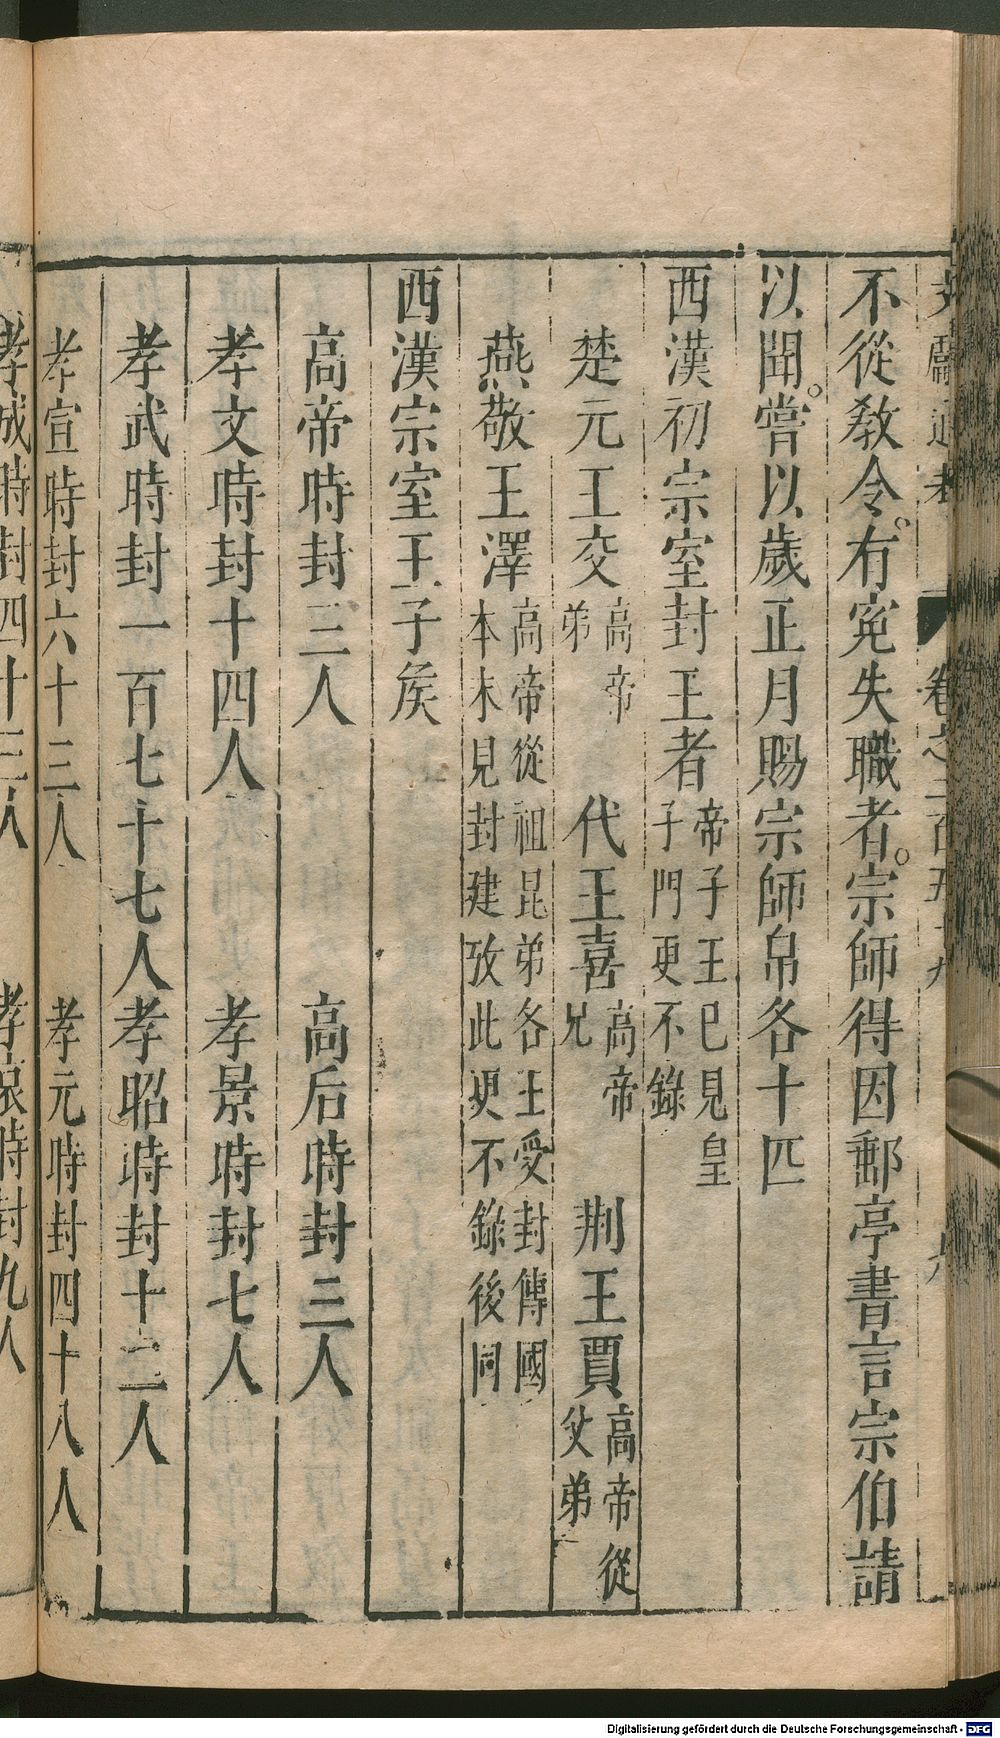 不從教令。有寃失職者。宗師得因郵亭書言宗伯請
以聞。嘗以歲正月賜宗師帛各十匹
西漢初宗室封王者帝子王已見皇子門更不錄
楚元王交高帝弟 代王喜高帝兄 荆王賈高帝從父弟
燕敬王澤高帝從祖昆弟各王受封傳國本末見封建攷此更不錄後同
西漢宗室王子矦
高帝時封三人 高后時封三人
孝文時封十四人 孝景時封七人
孝武時封一百七十七人 孝昭時封十二人
孝宣時封六十三人 孝元時封四十八人
孝成時封四十三人 孝哀時封九人
Digitalisierung gefördert durch die Deutsche Forschungsgemeinschaft - DFG